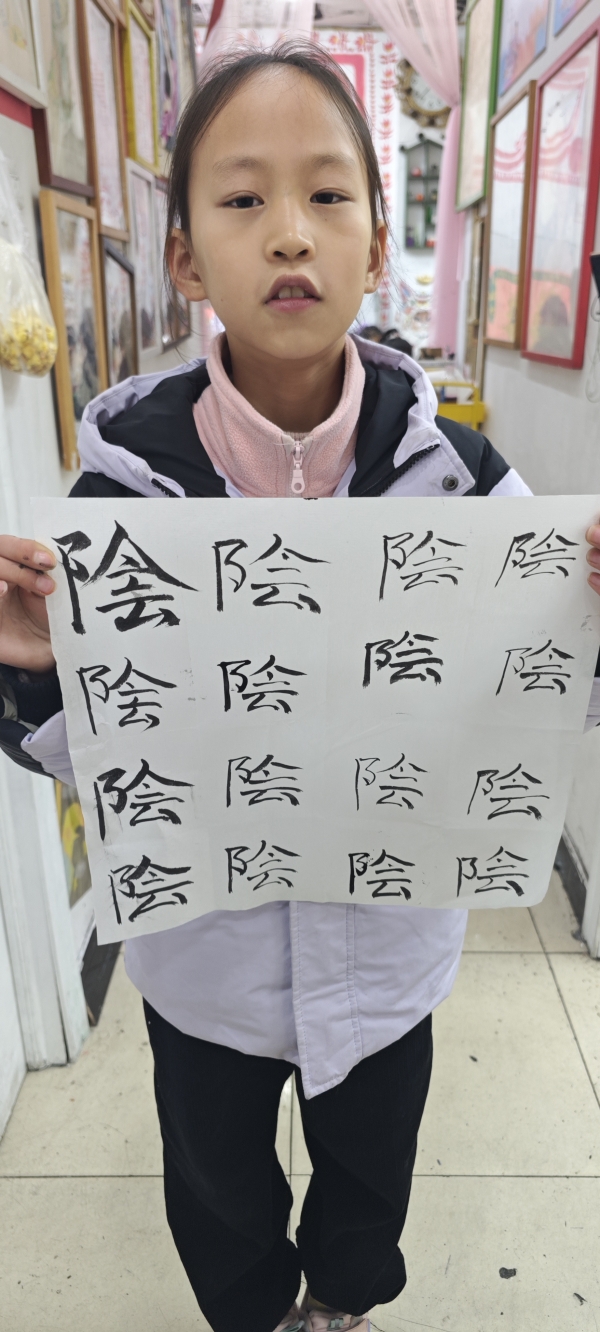 陰陰陰陰
陰陰陰陰
陰陰陰陰
陰陰陰陰